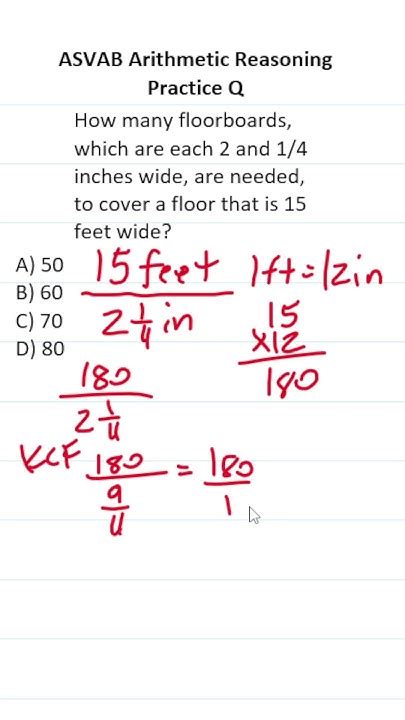 ASVAB Arithmetic Reasoning
Practice Q
How many floorboards,
which are each 2 and 1/4
inches wide, are needed,
to cover a floor that is 15
feet wide?
A) 50
B) 60
C) 70
D) 80
15 feet
2 1/4 in
1ft = 12in
15
x12
180
180
2 1/4
KCF 180 / 9/4 = 180/1